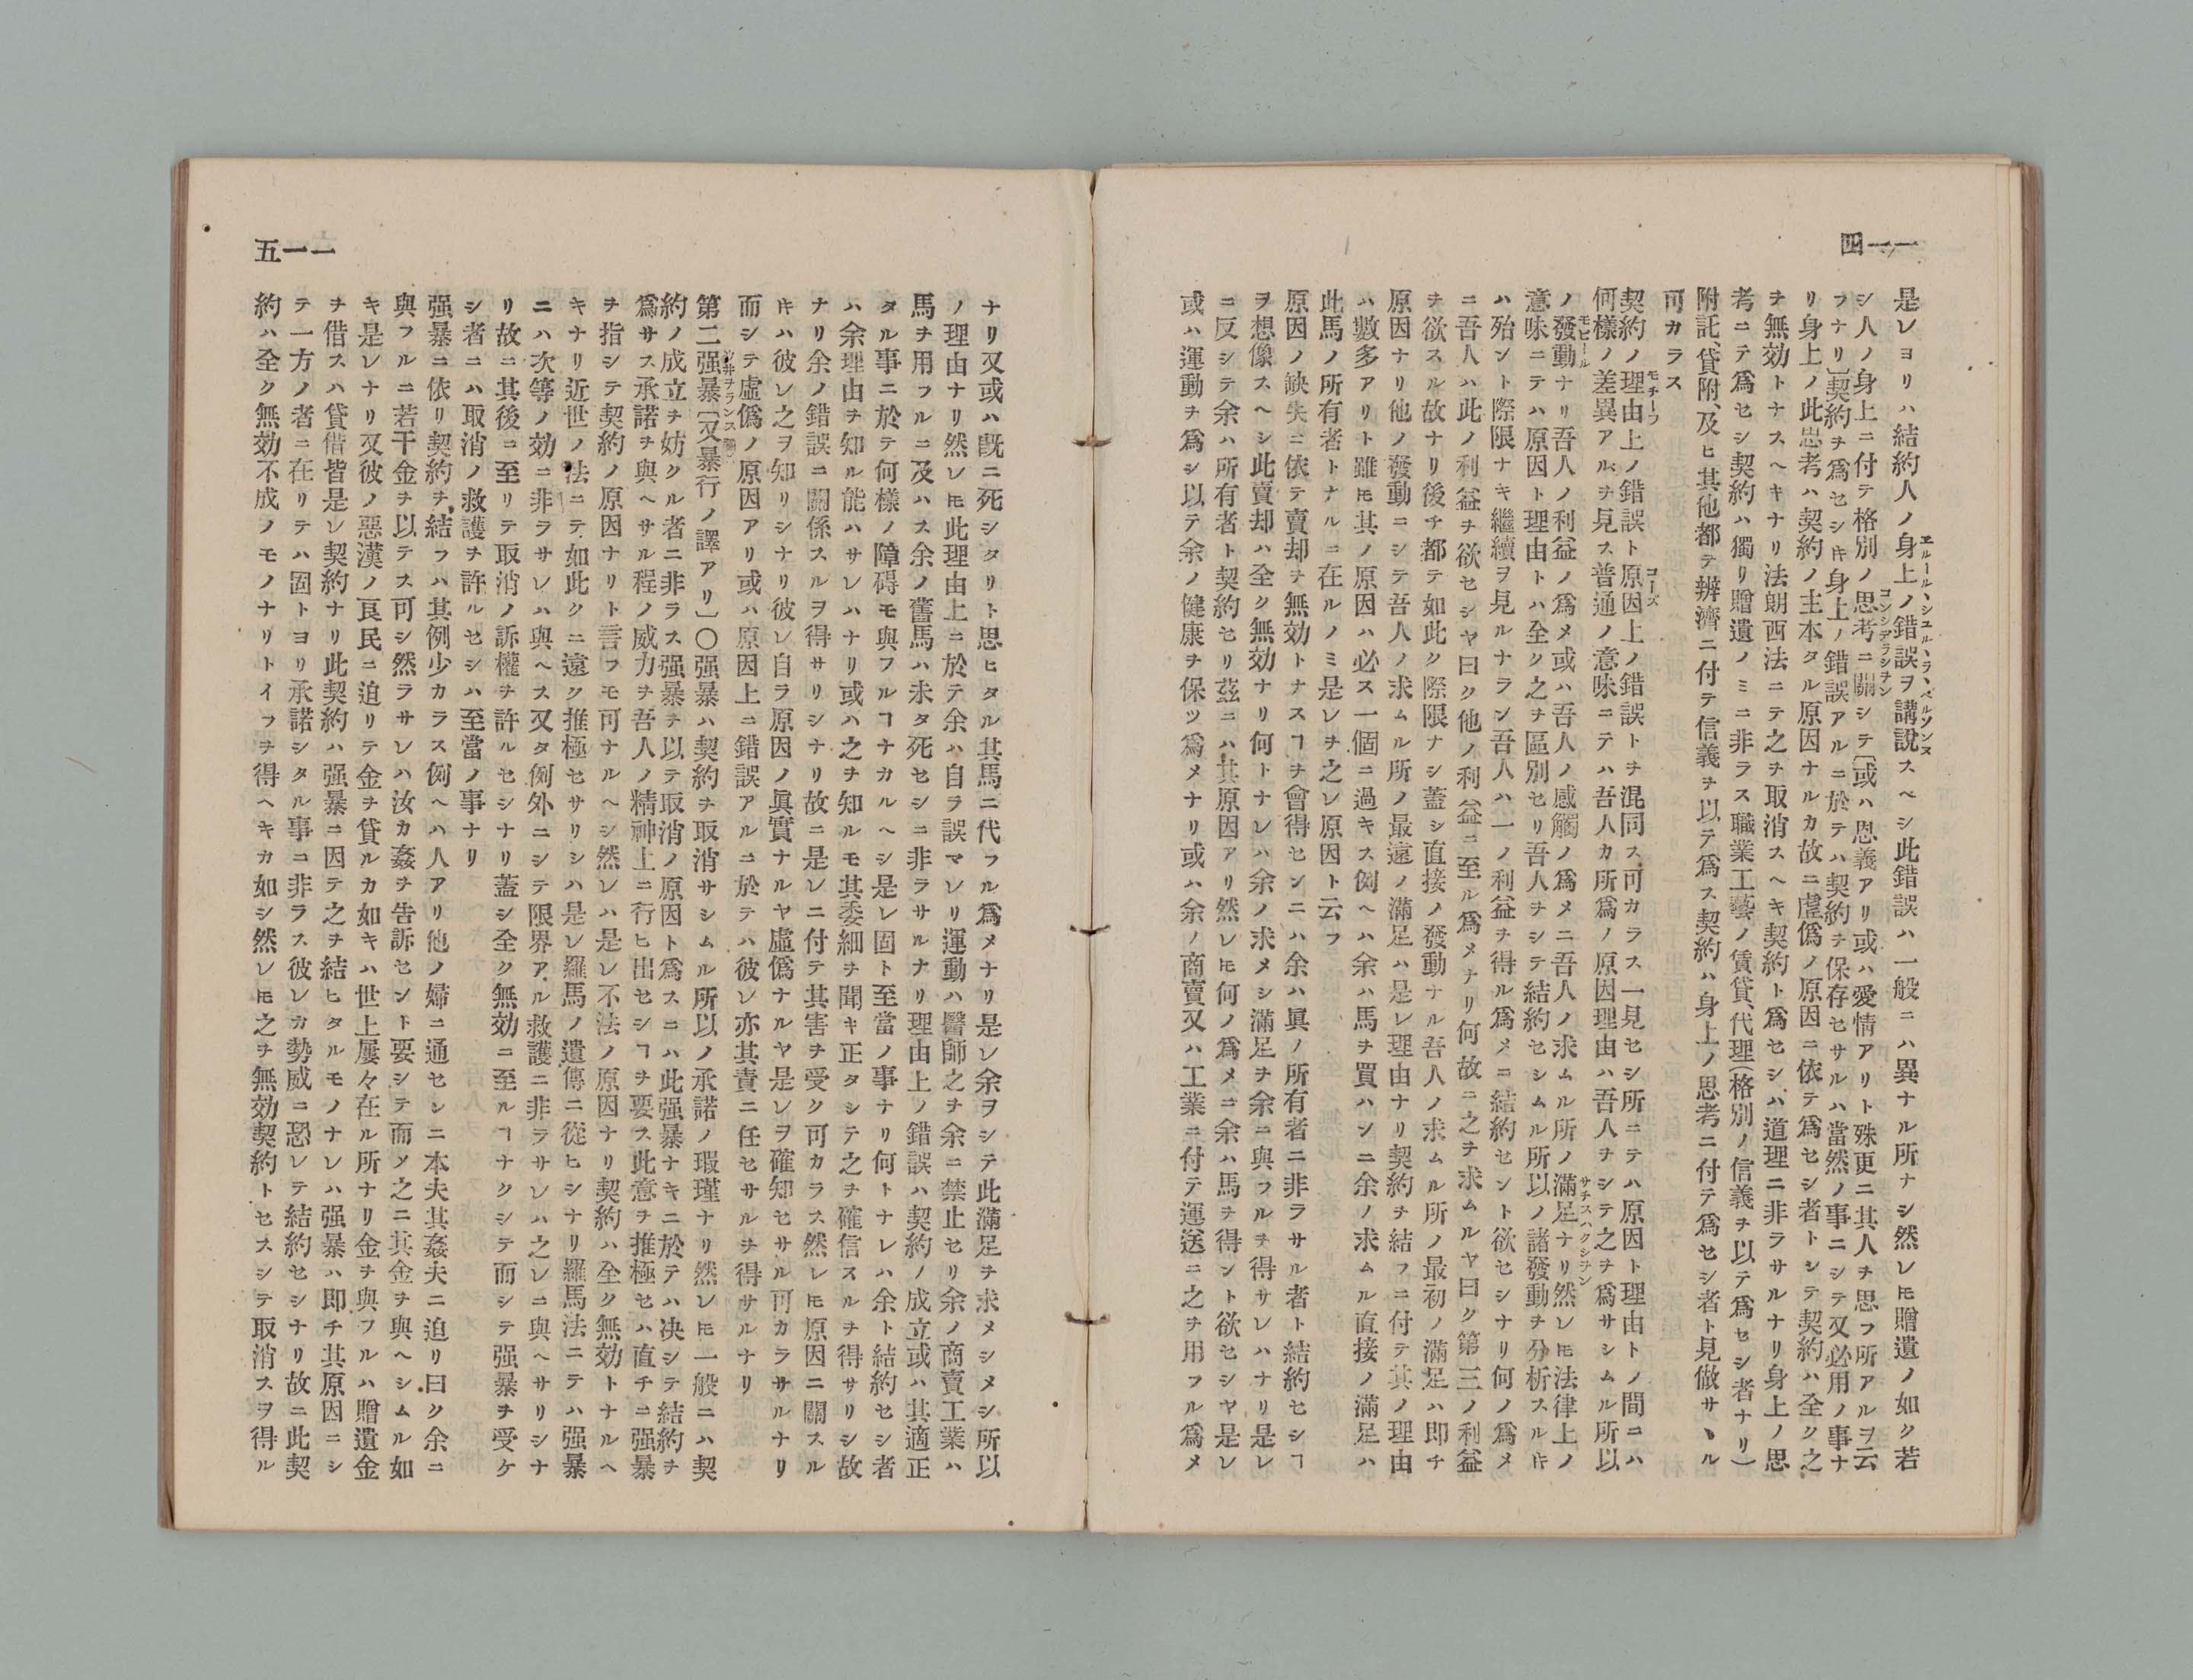 四一一
是レヨリハ結約人ノ身上ノ錯誤ヲ講說スベシ此錯誤ハ一般ニハ異ナル所ナシ然レ𪜈贈遺ノ如ク若
エルール、シユル、ラ、ペルソンヌ
シ人ノ身上ニ付テ格別ノ思考ニ關シテ〔或ハ恩義アリ或ハ愛情アリト殊更ニ其人ヲ思フ所アルヲ云
コンシデラシチン
フナリ〕契約ヲ爲セシ時身上ノ錯誤アルニ於テハ契約ヲ保存セサルハ當然ノ事ニシテ又必用ノ事ナ
リ身上ノ此思考ハ契約ノ主本タル原因ナルカ故ニ虛僞ノ原因ニ依テ爲セシ者トシテ契約ハ全ク之
ヲ無効トナスヘキナリ法朗西法ニテ之ヲ取消スヘキ契約ト爲セシハ道理ニ非ラサルナリ身上ノ思
考ニテ爲セシ契約ハ獨リ贈遺ノミニ非ラス職業工藝ノ賃貸、代理(格別ノ信義ヲ以テ爲セシ者ナリ)
附託、貸附、及ヒ其他都テ辨濟ニ付テ信義ヲ以テ爲ス契約ハ身上ノ思考ニ付テ爲セシ者ト見做サヽル
可カラス
契約ノ理由上ノ錯誤ト原因上ノ錯誤トヲ混同ス可カラス一見セシ所ニテハ原因ト理由トノ間ニハ
モチーフ
コーズ
何樣ノ差異アルヲ見ス普通ノ意味ニテハ吾人カ所爲ノ原因理由ハ吾人ヲシテ之ヲ爲サシムル所以
ノ發動ナリ吾人ノ利益ノ爲メ或ハ吾人ノ感觸ノ爲メニ吾人ノ求ムル所ノ滿足ナリ然レ𪜈法律上ノ
モビール
サチスハクシチン
意味ニテハ原因ト理由トハ全ク之ヲ區別セリ吾人ヲシテ結約セシムル所以ノ諸發動ヲ分析スル時
ハ殆ント際限ナキ繼續ヲ見ルナラン吾人ハ一ノ利益ヲ得ル爲メニ結約セント欲セシナリ何ノ爲メ
ニ吾人ハ此ノ利益ヲ欲セシヤ曰ク他ノ利益ニ至ル爲メナリ何故ニ之ヲ求ムルヤ曰ク第三ノ利益
ヲ欲スル故ナリ後チ都テ如此ク際限ナシ蓋シ直接ノ發動ナル吾人ノ求ムル所ノ最初ノ滿足ハ即チ
原因ナリ他ノ發動ニシテ吾人ノ求ムル所ノ最遠ノ滿足ハ是レ理由ナリ契約ヲ結フニ付テ其ノ理由
ハ數多アリト雖𪜈其ノ原因ハ必ス一個ニ過キス例ヘハ余ハ馬ヲ買ハンニ余ノ求ムル直接ノ滿足ハ
此馬ノ所有者トナルニ在ルノミ是レヲ之レ原因ト云フ
原因ノ缺失ニ依テ賣却ヲ無効トナスヿヲ會得センニハ余ハ眞ノ所有者ニ非ラサル者ト結約セシヿ
ヲ想像スヘシ此賣却ハ全ク無効ナリ何トナレハ余ノ求メシ滿足ヲ余ニ與フルヲ得サレハナリ是レ
ニ反シテ余ハ所有者ト契約セリ茲ニハ其原因アリ然レ𪜈何ノ爲メニ余ハ馬ヲ得ント欲セシヤ是レ
或ハ運動ヲ爲シ以テ余ノ健康ヲ保ツ爲メナリ或ハ余ノ商賣又ハ工業ニ付テ運送ニ之ヲ用フル爲メ
五一一
ナリ又或ハ旣ニ死シタリト思ヒタル其馬ニ代フル爲メナリ是レ余ヲシテ此滿足ヲ求メシメシ所以
ノ理由ナリ然レ𪜈此理由上ニ於テ余ハ自ラ誤マレリ運動ハ醫師之ヲ余ニ禁止セリ余ノ商賣工業ハ
馬ヲ用フルニ及ハス余ノ舊馬ハ未タ死セシニ非ラサルナリ理由上ノ錯誤ハ契約ノ成立或ハ其適正
タル事ニ於テ何樣ノ障碍モ與フルヿナカルヘシ是レ固ト至當ノ事ナリ何トナレハ余ト結約セシ者
ハ余理由ヲ知ル能ハサレハナリ或ハ之ヲ知ルモ其委細ヲ聞キ正タシテ之ヲ確信スルヲ得サリシ故
ナリ余ノ錯誤ニ關係スルヲ得サリシナリ故ニ是レニ付テ其害ヲ受ク可カラス然レ𪜈原因ニ關スル
時ハ彼レ之ヲ知リシナリ彼レ自ラ原因ノ眞實ナルヤ虛僞ナルヤ是レヲ確知セサル可カラサルナリ
而シテ虛僞ノ原因アリ或ハ原因上ニ錯誤アルニ於テハ彼レ亦其責ニ任セサルヲ得サルナリ
第二强暴〔又暴行ノ譯アリ〕〇强暴ハ契約ヲ取消サシムル所以ノ承諾ノ瑕瑾ナリ然レ𪜈一般ニハ契
約ノ成立ヲ妨クル者ニ非ラス强暴ヲ以テ取消ノ原因ト爲スニハ此强暴ナキニ於テハ決シテ結約ヲ
爲サス承諾ヲ與ヘサル程ノ威力ヲ吾人ノ精神上ニ行ヒ出セシヿヲ要ス此意ヲ推極セハ直チニ强暴
ヲ指シテ契約ノ原因ナリト言フモ可ナルヘシ然レハ是レ不法ノ原因ナリ契約ハ全ク無効トナルヘ
キナリ近世ノ法ニテ如此クニ遠ク推極セサリシハ是レ羅馬ノ遺傳ニ從ヒシナリ羅馬法ニテハ强暴
ニハ次等ノ効ニ非ラサレハ與ヘス又タ例外ニシテ限界アル救護ニ非ラサレハ之レニ與ヘサリシナ
リ故ニ其後ニ至リテ取消ノ訴權ヲ許ルセシナリ蓋シ全ク無効ニ至ルヿナクシテ而シテ强暴ヲ受ケ
シ者ニハ取消ノ救護ヲ許ルセシハ至當ノ事ナリ
强暴ニ依リ契約ヲ結フハ其例少カラス例ヘハ人アリ他ノ婦ニ通セシニ本夫其姦夫ニ迫リ曰ク余ニ
與フルニ若干金ヲ以テス可シ然ラサレハ汝カ姦ヲ告訴セント要シテ而メ之ニ其金ヲ與ヘシムル如
キ是レナリ又彼ノ惡漢ノ良民ニ迫リテ金ヲ貸ルカ如キハ世上屢々在ル所ナリ金ヲ與フルハ贈遺金
ヲ借スハ貸借皆是レ契約ナリ此契約ハ强暴ニ因テ之ヲ結ヒタルモノナレハ强暴ハ即チ其原因ニシ
テ一方ノ者ニ在リテハ固トヨリ承諾シタル事ニ非ラス彼レカ勢威ニ恐レテ結約セシナリ故ニ此契
約ハ全ク無効不成ノモノナリトイフヲ得ヘキカ如シ然レ𪜈之ヲ無効契約トセスシテ取消スヲ得ル